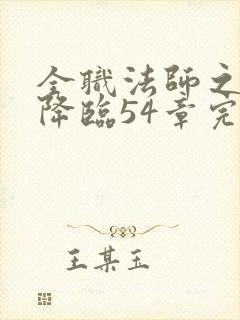 全職法師之
降臨54章完
王某玉